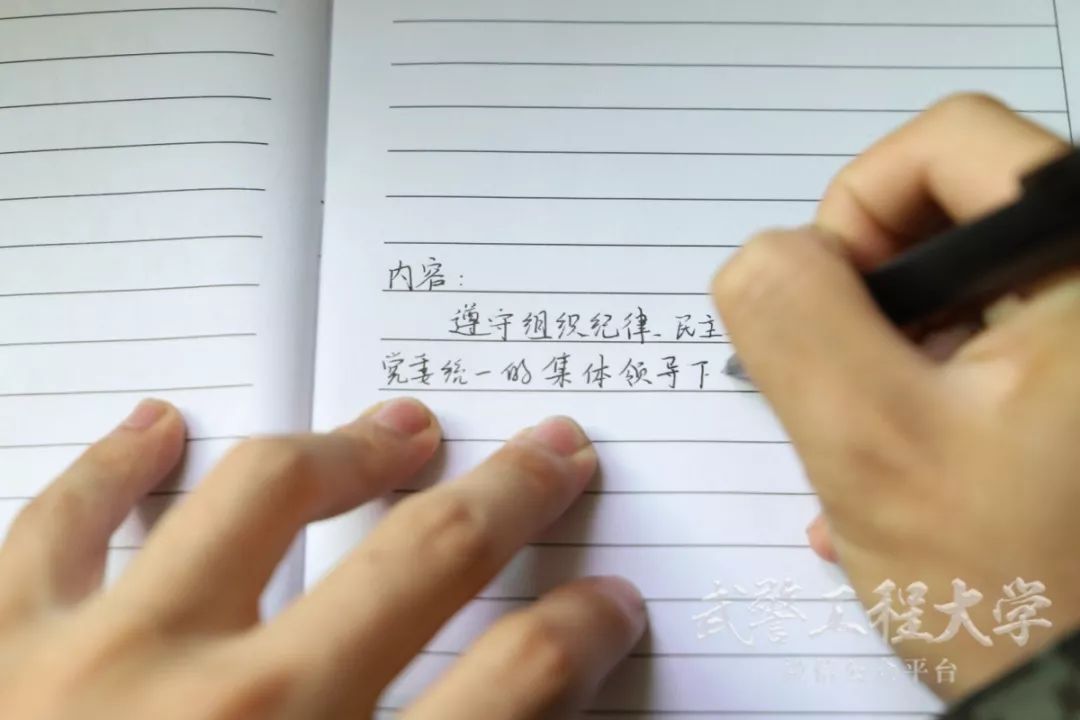 内容：
遵守组织纪律、民主
党委统一的集体领导下
武警工程大学
微信公众平台